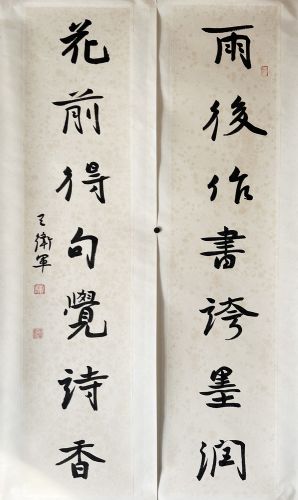 雨後作書誇墨潤
花前得句覺詩香
王衛軍